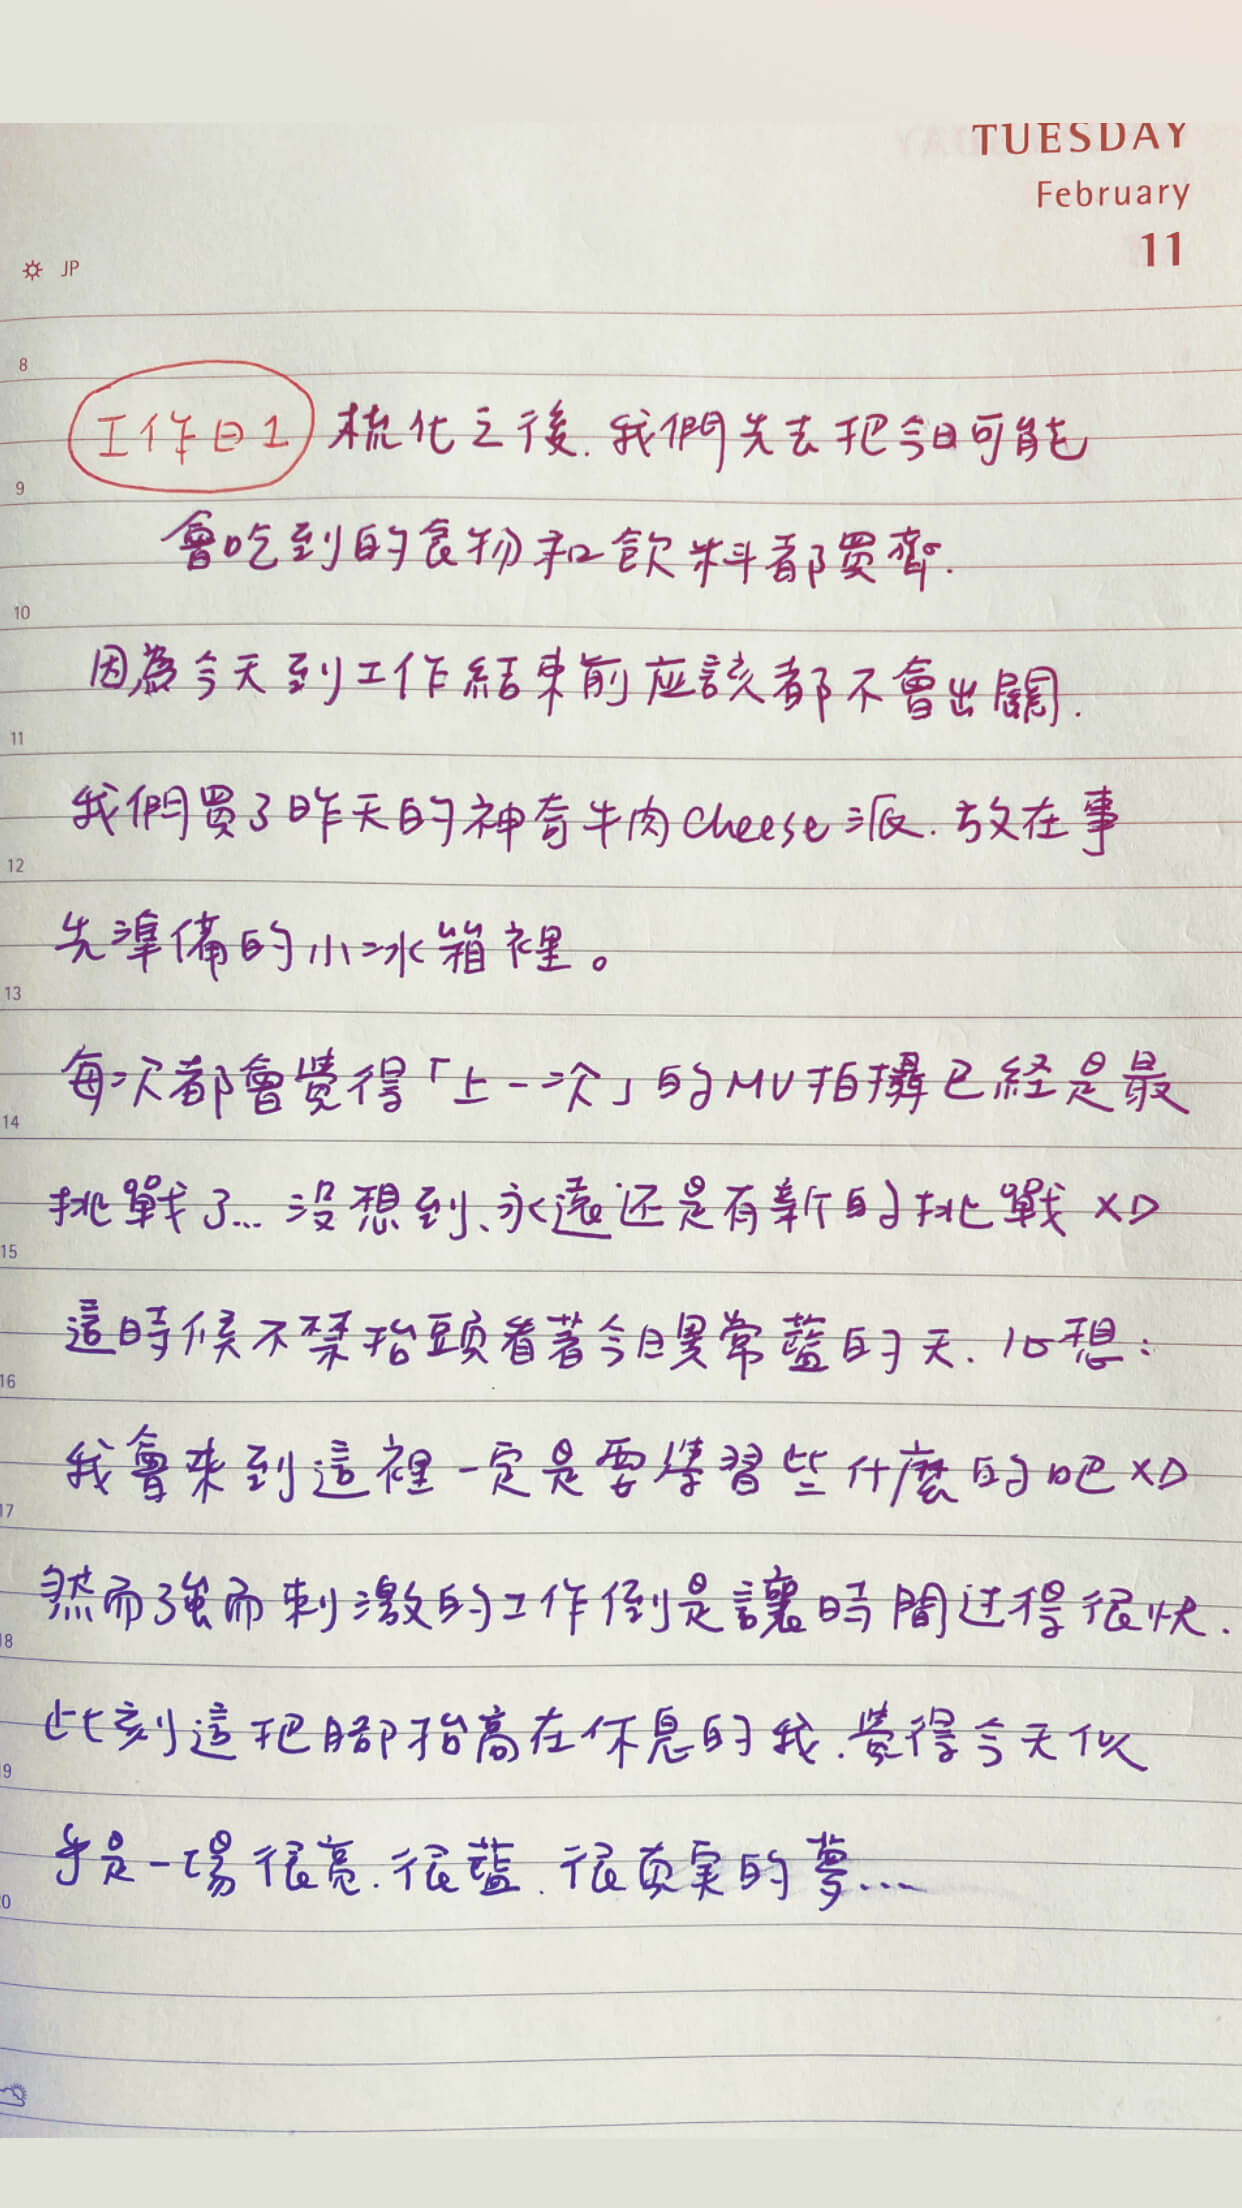 TUESDAY
February
11
JP
8
工作日1 梳化之後. 我們先去把今日可能
9
會吃到的食物和飲料都買齊.
10
因為今天到工作結束前应該都不會出關.
11
我們買了昨天的神奇牛肉cheese派. 放在事
12
先準備的小冰箱裡。
13
每次都會覺得「上一次」的MV拍攝已経是最
14
挑戰了... 沒想到、永遠还是有新的挑戰 XD
15
這時候不禁抬頭看著今日異常藍的天. 心想:
16
我會來到這裡一定是要學習些什麼的吧 XD
17
然而強而刺激的工作倒是讓時間过得很快.
18
此刻這把腳抬高在休息的我. 覺得今天似
19
乎是一場很亮. 很藍. 很真実的夢...
20